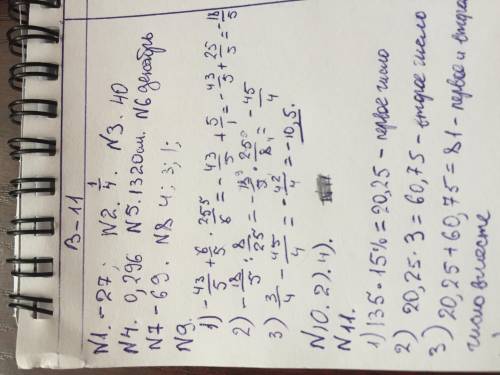 В-11
N1. -27; N2. 1/4. N3. 40
N4. 0,296 N5. 1320 см. N6 декабрь
N7 - 69. N8 4; 3; 1;
N9.
1) - 43/5 + 6/5 · 25/6 = - 43/5 + 5/1 = - 43/5 + 25/5 = - 18/5
2) - 18/5 : 8/25 = - 18/5 · 25/8 = - 45/4
3) 3/4 - 45/4 = - 42/4 = - 10,5.
N10. 2). 4).
N11.
1) 135 · 15% = 20,25 - первое число
2) 20,25 · 3 = 60,75 - второе число
3) 20,25 + 60,75 = 81 - первое и второе
число вместе